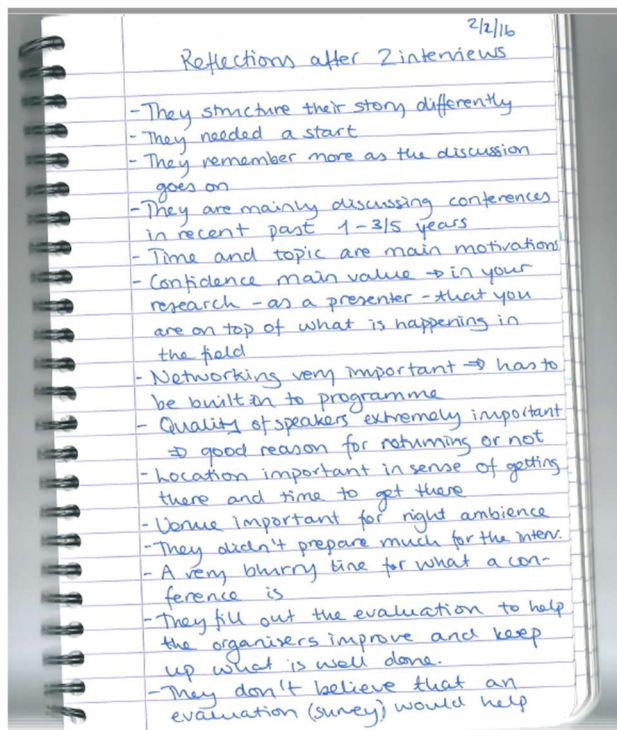 2/2/16
Reflections after 2 interviews
- They structure their story differently
- They needed a start
- They remember more as the discussion
goes on
- They are mainly discussing conferences
in recent past 1-3/5 years
- Time and topic are main motivations
- Confidence main value → in your
research - as a presenter - that you
are on top of what is happening in
the field
- Networking very important → has to
be built in to programme
- Quality of speakers extremely important
→ good reason for returning or not
- Location important in sense of getting
there and time to get there
- Venue important for right ambience
- They didn't prepare much for the interv.
- A very blurry line for what a con-
ference is
- They fill out the evaluation to help
the organisers improve and keep
up what is well done.
- They don't believe that an
evaluation (survey) would help